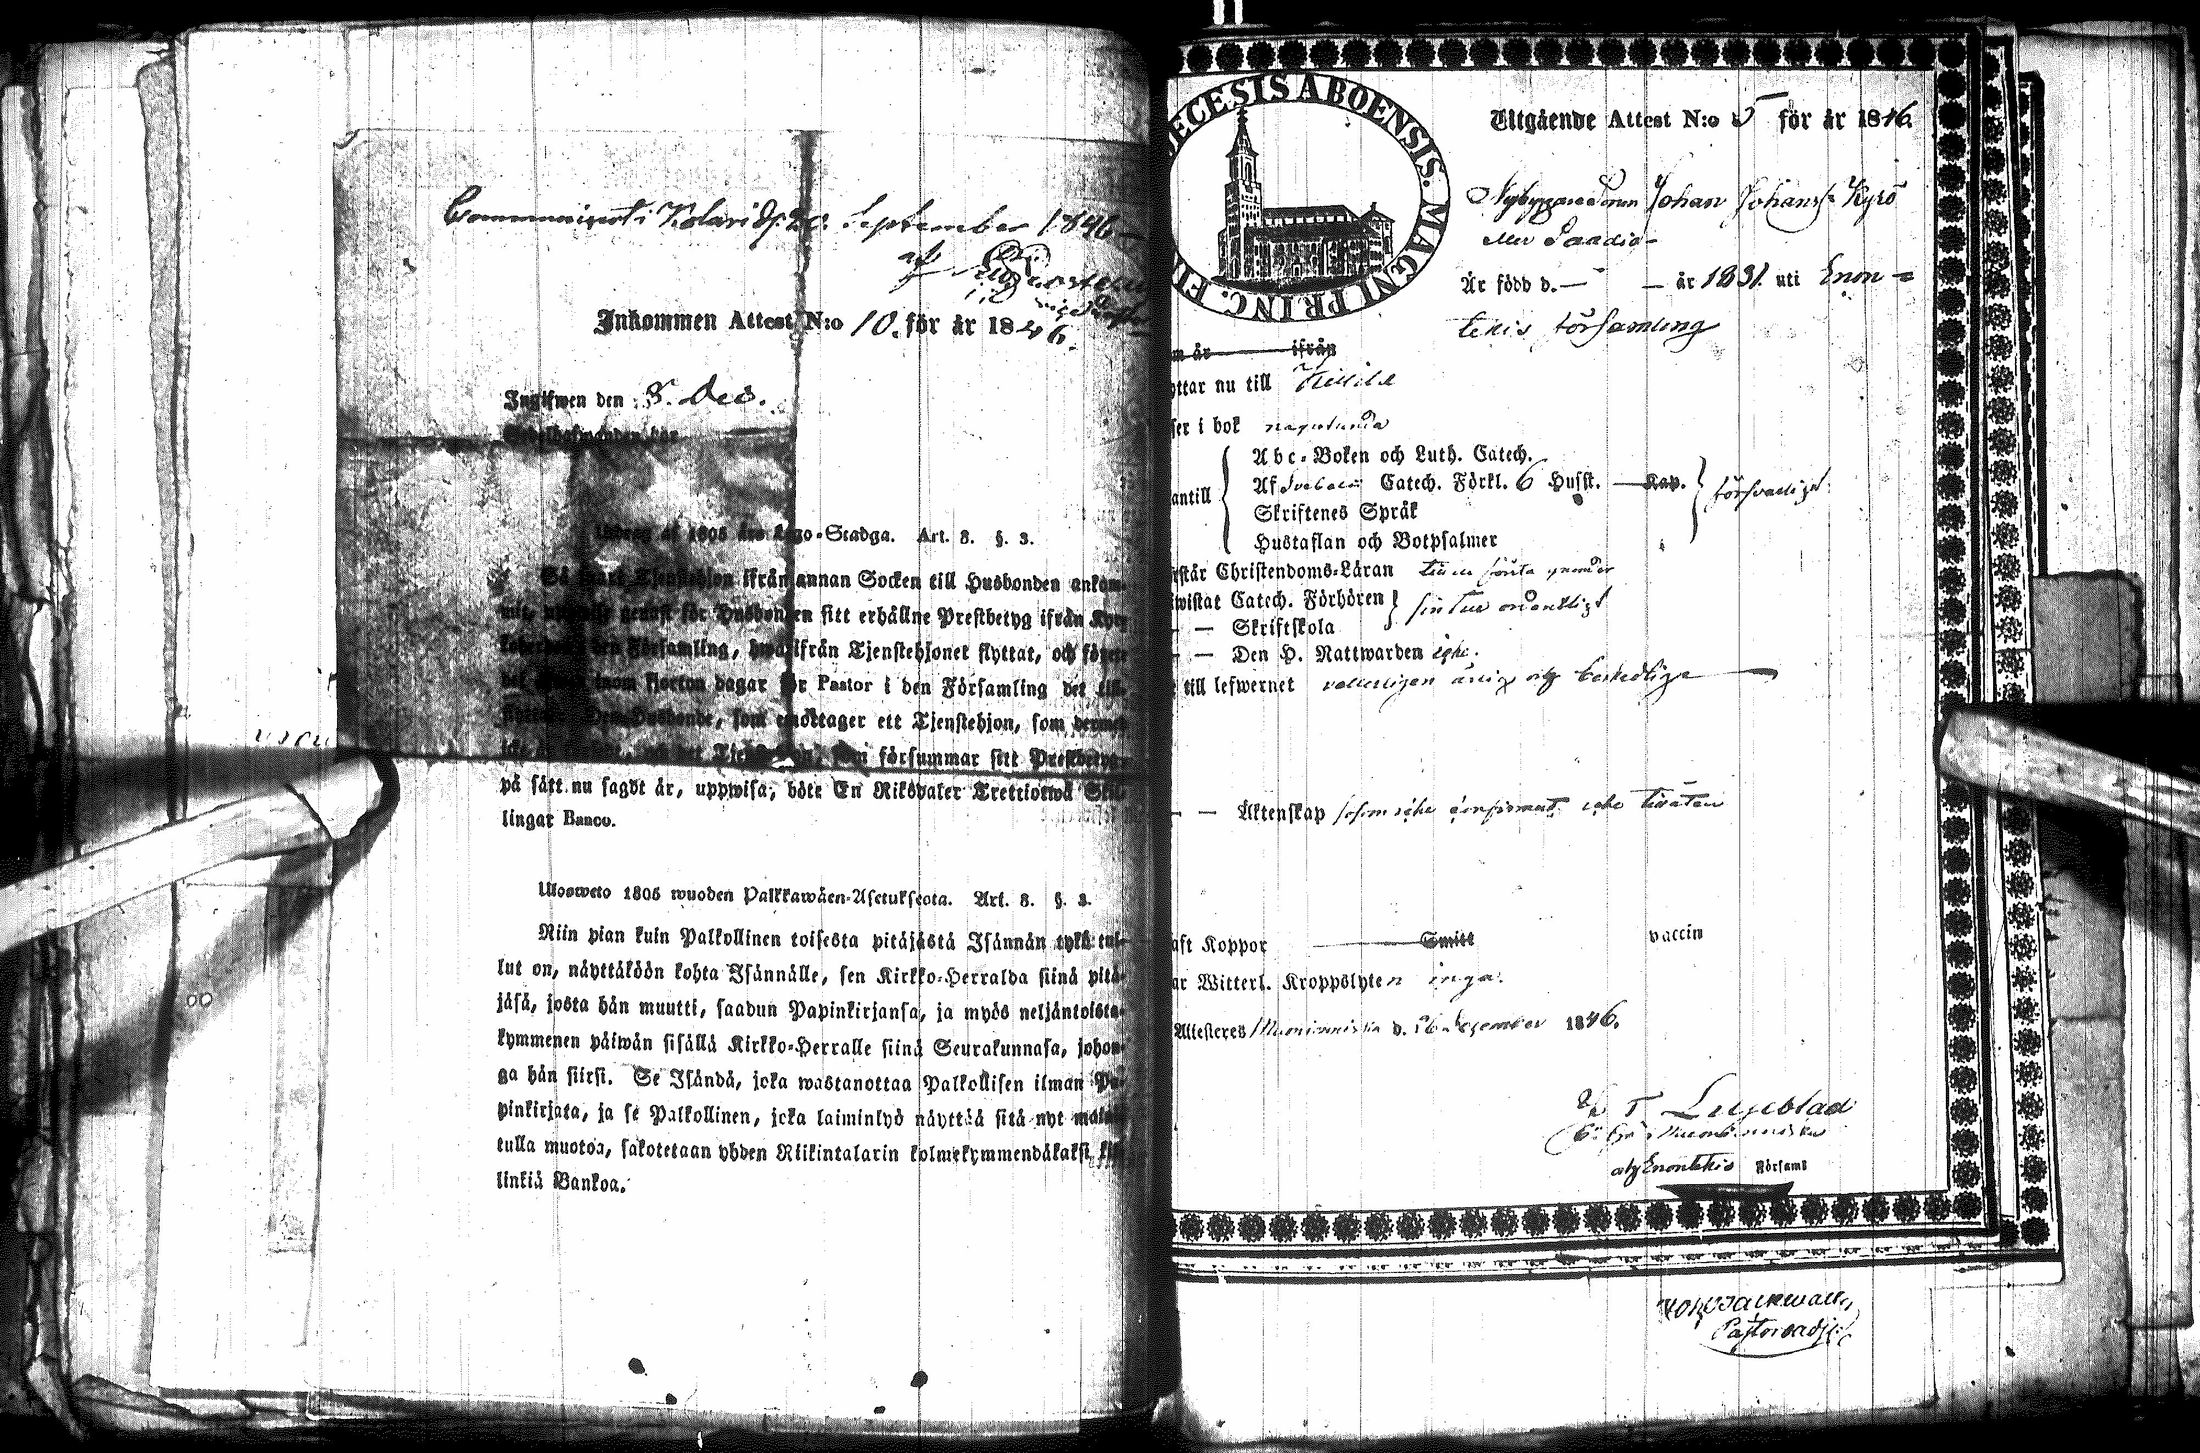 Communicert i Kolari d. 20. September 1846
af
Inkommen Attest N:o 10. för år 1846.
Ingifwen den 8. Dec.
Utdrag af 1805 års Lego-Stadga. Art. 8. §. 3.
Så snart Tjenstehjon ifrån annan Socken till Husbonden ankom-
mit, uppwise genast för Husbonden sitt erhållne Prestbetyg ifrån Kyrk
den Församling, hwarifrån Tjenstehjonet flyttat, och förete
det inom fjorton dagar för Pastor i den Församling det till-
flyttat. Den Husbonde, som emottager ett Tjenstehjon, som dermed
Tjenstehjon, som försummar sitt Prestbetyg,
på sätt nu sagdt är, uppwisa, böte En Riksdaler Trettiotwå Skil-
lingar Banco.
Uloosweto 1805 wuoden Palkkawäen-Asetuksesta. Art. 8. §. 3.
Niin pian kuin Palkollinen toisesta pitäjästä Isännän tykö tul-
lut on, näyttäköön kohta Isännälle, sen Kirkko-Herralda siinä pitä-
jäsä, josta hän muutti, saadun Papinkirjansa, ja myös neljäntoista-
kymmenen päiwän sisällä Kirkko-Herralle siinä Seurakunnasa, johon-
ga hän siirsi. Se Isändä, joka wastanottaa Palkollisen ilman Pa-
pinkirjata, ja se Palkollinen, joka laiminlyö näyttää sitä nyt mainit-
tulla muotoa, sakotetaan yhden Riikintalarin kolmekymmendäkaksi kil-
linkiä Bankoa.
ŒCESIS ABOENSIS. MAGNI PRINC. FI
Utgående Attest N:o 5 för år 1846.
Nybyggaresonen Johan Johanss. Kyrö
eller Saadio
Är född d. — — år 1831. uti Enon=
tekis församling
m år ifrån
yttar nu till Kittilä
ser i bok någorlunda
antill
Abc-Boken och Luth. Catech.
Af Svebelii Catech. Förkl. 6 Husst. — Kap.
Skriftenes Språk
Hustaflan och Botpsalmer
försvarligt
rstår Christendoms-Läran till första grunder
wistat Catech. Förhören
— — Skriftskola
— — Den H. Nattwarden icke.
till lefwernet veterligen ärlig och beskedlig
— — Äktenskap såsom icke confirmerat, icke tillåten
aft Koppor Smitt vaccin
ar Witterl. Kroppslyten inga.
Attesteras Muonionniska d. 26 December 1846.
Liljeblad
Muonionniska
och Enontekis Församl
Pastorsadj.